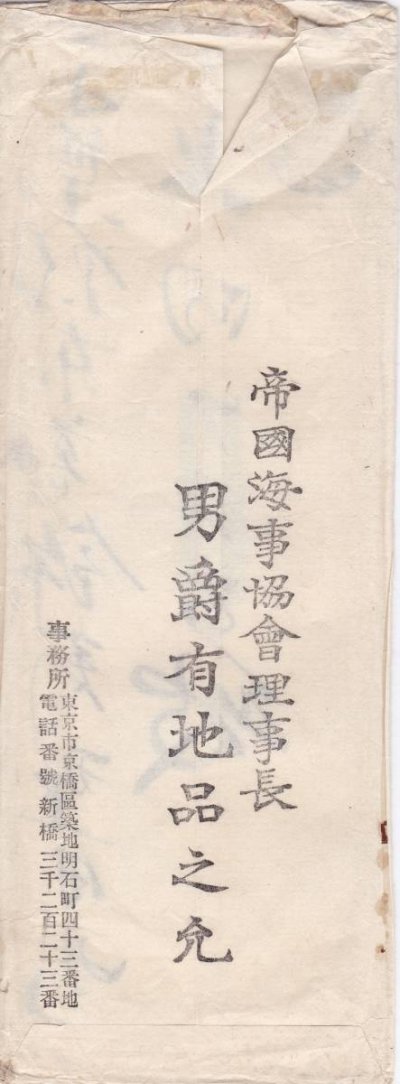 帝國海事協會理事長
男爵有地品之允
事務所
東京市京橋區築地明石町四十三番地
電話番號新橋三千二百二十三番